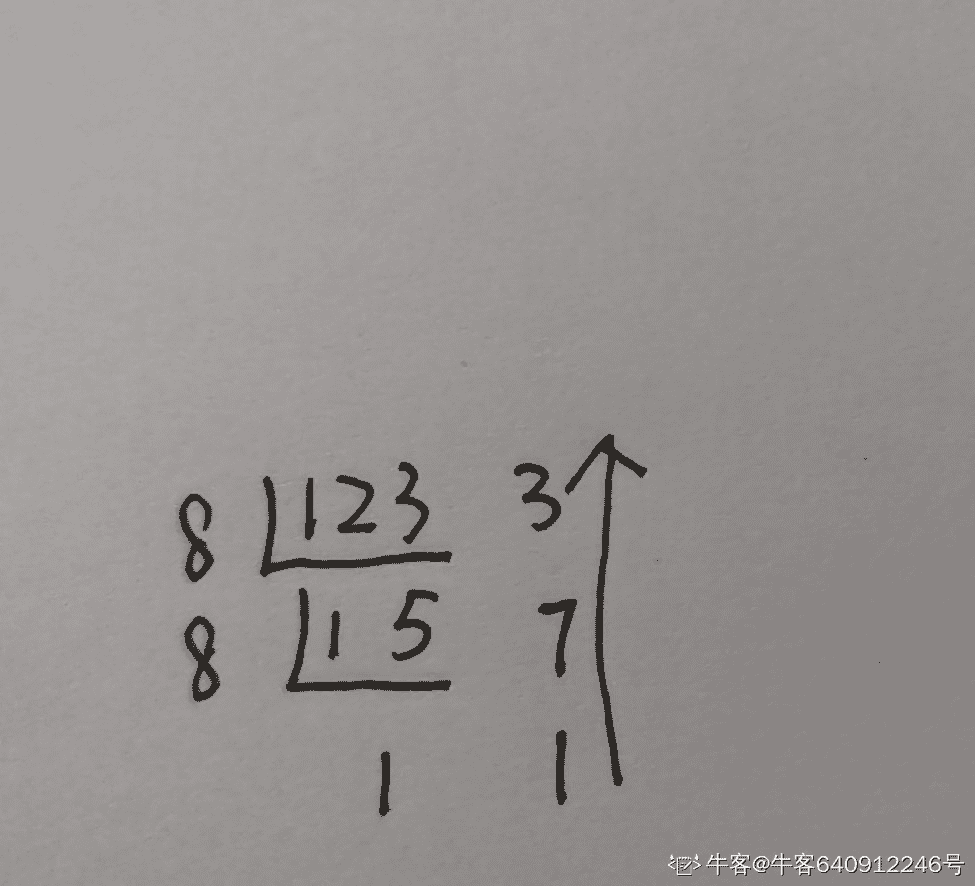 8 123 3
8 15 7
1 1
牛客@牛客640912246号